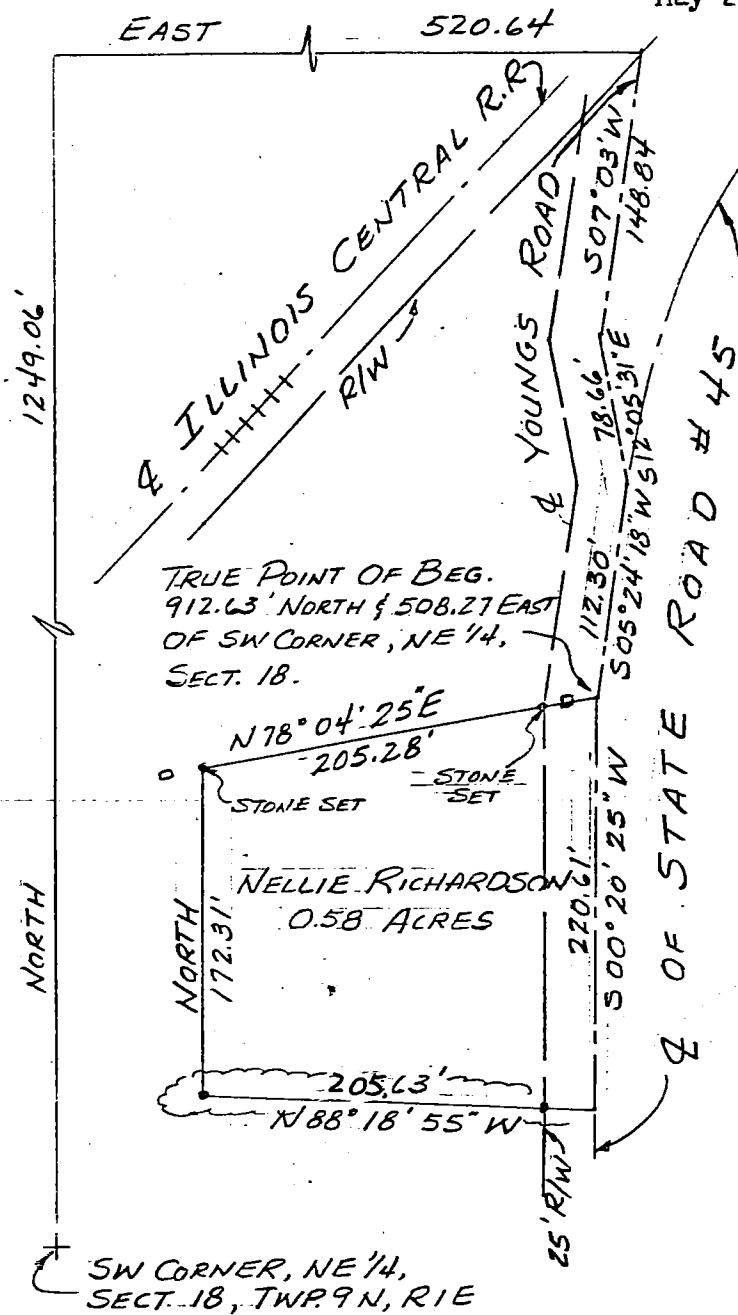 May 2
EAST 520.64
1249.06'
NORTH
℄ ILLINOIS CENTRAL R.R
R/W
℄ YOUNGS ROAD
S07°03'W
148.84
78.66'
S12°05'31"E
112.30'
S05°24'18"W
℄ OF STATE ROAD # 45
TRUE POINT OF BEG.
912.63' NORTH & 508.27 EAST
OF SW CORNER, NE 1/4,
SECT. 18.
N 78° 04' 25"E
205.28'
STONE SET
STONE
SET
NELLIE RICHARDSON
0.58 ACRES
NORTH
172.31'
220.61'
S 00° 20' 25" W
205.63'
N 88° 18' 55" W
25' R/W
SW CORNER, NE 1/4,
SECT. 18, TWP. 9 N, R 1 E